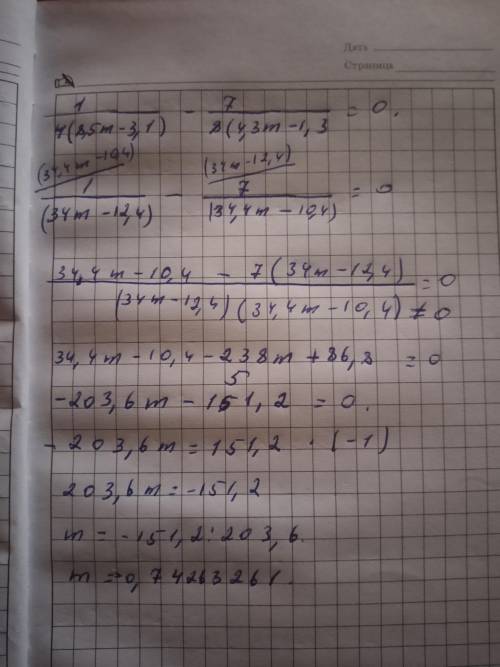 Дата
Страница
1 / 4(8,5m-3,1) - 7 / 8(4,3m-1,3 = 0.
(34,4m-10,4) (34m-12,4)
1 / (34m-12,4) - 7 / (34,4m-10,4) = 0
34,4m-10,4 - 7(34m-12,4) / (34m-12,4)(34,4m-10,4) ≠ 0 = 0
34,4m-10,4-238m+86,8 = 0
5
-203,6m-151,2 = 0.
-203,6m=151,2 · (-1)
203,6m=-151,2
m = -151,2:203,6.
m = -0,74263261.